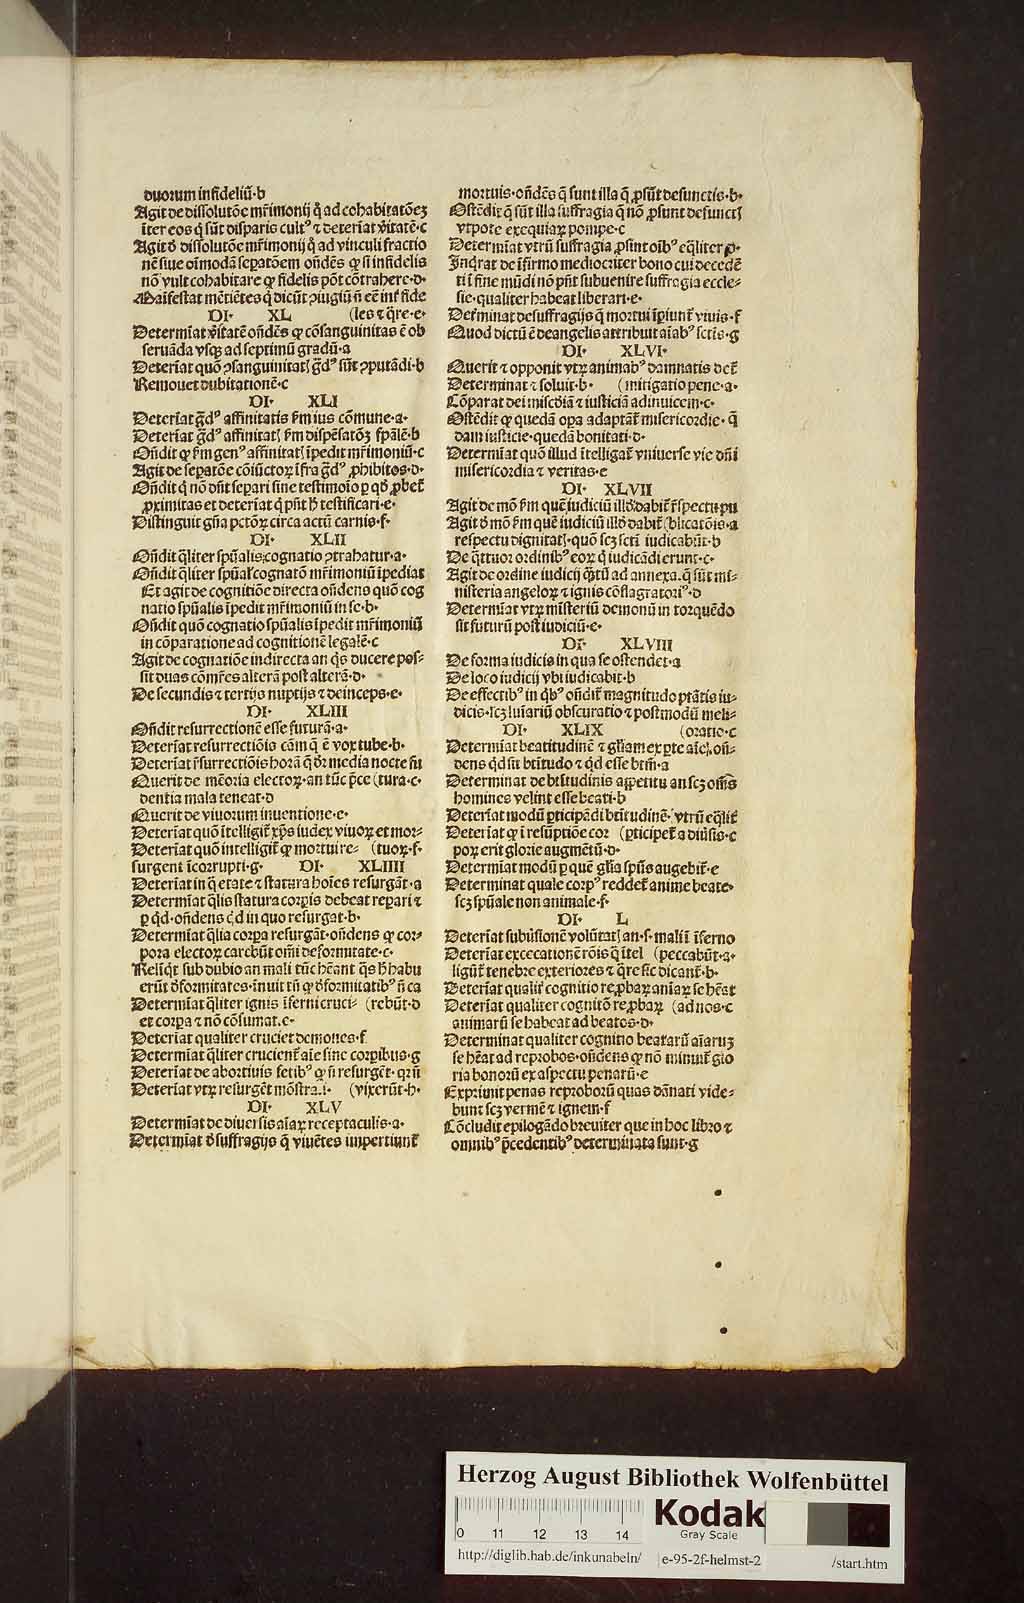 duorum infideliū·b
Agit de dissolutōe mr̄imonij q̄ ad cohabitatōeꝫ
īter eos q̄ sūt disparis cultꝰ ⁊ deteriāt v̄itatē·c
Agit d̄ dissolutōe mr̄imonij q̄ ad vinculi fractio
nē siue oīmodā sepatōem on̄dēs ꝙ si infidelis
nō vult cohabitare ꝙ fidelis pōt cōtrahere·d·
Manifestat mētiētes q̄ dicūt ꝯiugiū n̄ eē int̄ fide
DI· XL (les ⁊ q̄re·e·
Determīat v̄itatē on̄dēs ꝙ cōsanguinitas ē ob
seruāda vsqꝫ ad septimū gradū·a
Deteriat quō ꝯsanguinitatꝭ gͣdꝰ sūt ꝯputādi·b
Remouet dubitationē·c
DI· XLI
Deteriat gͣdꝰ affinitatis ẜm ius cōmune·a·
Deteriat gͣdꝰ affinitatꝭ ẜm dispēsatōꝫ sp̄alē·b
On̄dit ꝙ ẜm genꝰ affinitatꝭ īpedit mr̄imoniū·c
Agit de sepatōe cōiūctoꝝ īfra gͣdꝰ ꝓhibitos·d·
On̄dit q̄ nō dn̄t separi sine testimoīo ꝑ qd̄ ꝓbet̄
ꝓximitas et deteriat q̄ pn̄t h̄ testificari·e·
Distinguit gn̄a pctōꝝ circa actū carnis·f·
DI· XLII
On̄dit q̄liter spūalis cognatio ꝯtrahatur·a·
On̄dit q̄liter spūal' cognatō mr̄imoniū īpediat
Et agit de cognitiōe directa on̄dens quō cog
natio spūalis īpedit mr̄imoniū in se·b·
On̄dit quō cognatio spūalis īpedit mr̄imoniū
in cōparatione ad cognitionē legalē·c
Agit de cognatiōe indirecta an q̄s ducere pos⸗
sit duas cōmr̄es alterā post alterā·d·
De secundis ⁊ tertijs nuptijs ⁊ deinceps·e·
DI· XLIII
On̄dit resurrectionē esse futurā·a·
Deteriat resurrectiōis cām q̄ ē vox tube·b·
Deteriat r̄surrectiōis horā q̄ dr̄ media nocte fu
Querit de mēoria electoꝝ·an tūc p̄ce (tura·c·
dentia mala teneat·d
Querit de viuorum inuentione·e·
Deteriat quō ītelligit̄ xp̄s iudex viuoꝝ et mor⸗
Deteriat quō intelligit̄ ꝙ mortui re⸗ (tuoꝝ·f·
surgent īcorrupti·g· DI· XLIIII
Deteriat in q̄ etate ⁊ statura hoīes resurgāt·a
Determīat q̄lis statura corꝑis debeat reꝑari ⁊
ꝑ qͥd·on̄dens qͥd in quo resurgat·b·
Determīat q̄lia corꝑa resurgāt·on̄dens ꝙ cor⸗
pora electoꝝ carebūt om̄i deformitate·c·
Relīqͥt sub dubio an mali tūc hēant q̄s h̄ habu
erūt d̄formitates·Innuit tn̄ ꝙ d̄formitatibꝰ n̄ ca
Determīat q̄liter ignis īferni cruci⸗ (rebūt·d
et corꝑa ⁊ nō cōsumat·e·
Deteriat qualiter cruciet demones·f
Determīat q̄liter crucient̄ aīe sine corꝑibus·g
Deteriat de abortiuis fetibꝰ ꝙ n̄ resurgēt·qꝛ n̄
Deteriat vtꝝ resurgēt mōstra·i· (vixerūt·h·
DI· XLV
Determīat de diuersis aīaꝝ receptaculis·a·
Determīat d̄ suffragijs q̄ viuētes impertiunt̄
mortuis·on̄dēs q̄ sunt illa q̄ ꝓsūt defunctis·b·
Ostēdit q̄ sūt illa suffragia q̄ nō ꝓsunt defunctꝭ
vtpote exequiaꝝ pompe·c
Determīat vtrū suffragia ꝓsint oībꝰ eq̄liter ꝓ·
Indrat de īfirmo mediocriter bono cui decedē
ti ī fine mūdi nō pn̄t subuenire suffragia eccle⸗
sie·qualiter habeat liberari·e·
Det̄minat de suffragijs q̄ mortui īpiunt̄ viuis·f
Quod dictū ē de angelis attribuit aīabꝰ sctīs·g
DI· XLVI·
Querit ⁊ opponit vtꝝ animabꝰ damnatis det̄
Determinat ⁊ soluit·b· (mitigatio pene·a·
Cōparat dei miscdiā ⁊ iusticiā adinuicem·c·
Ostēdit ꝙ quedā oꝑa adaptāt̄ misericordie· q̄
dam iusticie·quedā bonitati·d·
Determīat quō illud ītelligat̄ vniuerse vie dn̄i
misericordia ⁊ veritas·e
DI· XLVII
Agit de mō ẜm quē iudiciū illd̄ dabit̄ r̄spectu pu
Agit d̄ mō ẜm quē iudiciū illd̄ dabit̄ (blicatōis·a
respectu dignitatꝭ·quō scꝫ sctī iudicabūt·b
De q̄ttuor ordinibꝰ eoꝝ q̄ iudicādi erunt·c·
Agit de ordine iudicij qͣtū ad annexa·q̄ sūt mi⸗
nisteria angeloꝝ ⁊ ignis cōflagratoriꝰ·d
Determīat vtꝝ mīsteriū demonū in torquēdo
sit futurū post iudiciū·e·
DI· XLVIII
De forma iudicis in qua se ostendet·a
De loco iudicij vbi iudicabit·b
De effectibꝰ in qͥbꝰ on̄dit̄ magnitudo ptātis iu⸗
dicis·scꝫ luīariū obscuratio ⁊ postmodū meli⸗
DI· XLIX (oratio·c
Determīat beatitudinē ⁊ gl'iam ex ꝑte aīe·on̄⸗
dens qͥd sit btītudo ⁊ qͥd esse btm̄·a
Determinat de btītudinis appetitu an scꝫ oms̄
homines velint esse beati·b
Deteriat modū ꝑticipādi btītudinē· vtrū eq̄lit̄
Deteriat ꝙ ī resūptiōe cor (ꝑticipet̄ a diūsis·c
poꝝ erit glorie augmētū·d·
Determīat modū ꝑ quē gl'ia spūs augebit̄·e
Determinat quale corpꝰ reddet̄ anime beate·
scꝫ spūale non animale·f·
DI· L
Deteriat subiūsionē volūtatꝭ an·s·mali ī īferno
Deteriat excecationē rōis q̄ ītel (peccabūt·a·
ligūt̄ tenebre exteriores ⁊ q̄re sic dicant̄·b·
Deteriat qualit̄ cognitio reꝓbaꝝ aniaꝝ se hēat
Deteriat qualiter cognitō reꝓbaꝝ (ad nos·c
animarū se habeat ad beatos·d·
Determinat qualiter cognitio beatarū aīaruꝫ
se hēat ad reprobos·on̄dens ꝙ nō minuit̄ glo
ria bonorū ex aspectu penarū·e
Exprimit penas reproborū quas dānati vide⸗
bunt scꝫ vermē ⁊ ignem·f
Cōcludit epilogādo breuiter que in hoc libro ⁊
omnibꝰ p̄cedentibꝰ determinata sunt·g
Herzog August Bibliothek Wolfenbüttel
0 11 12 13 14
Kodak
Gray Scale
http://diglib.hab.de/inkunabeln/ e-95-2f-helmst-2 /start.htm